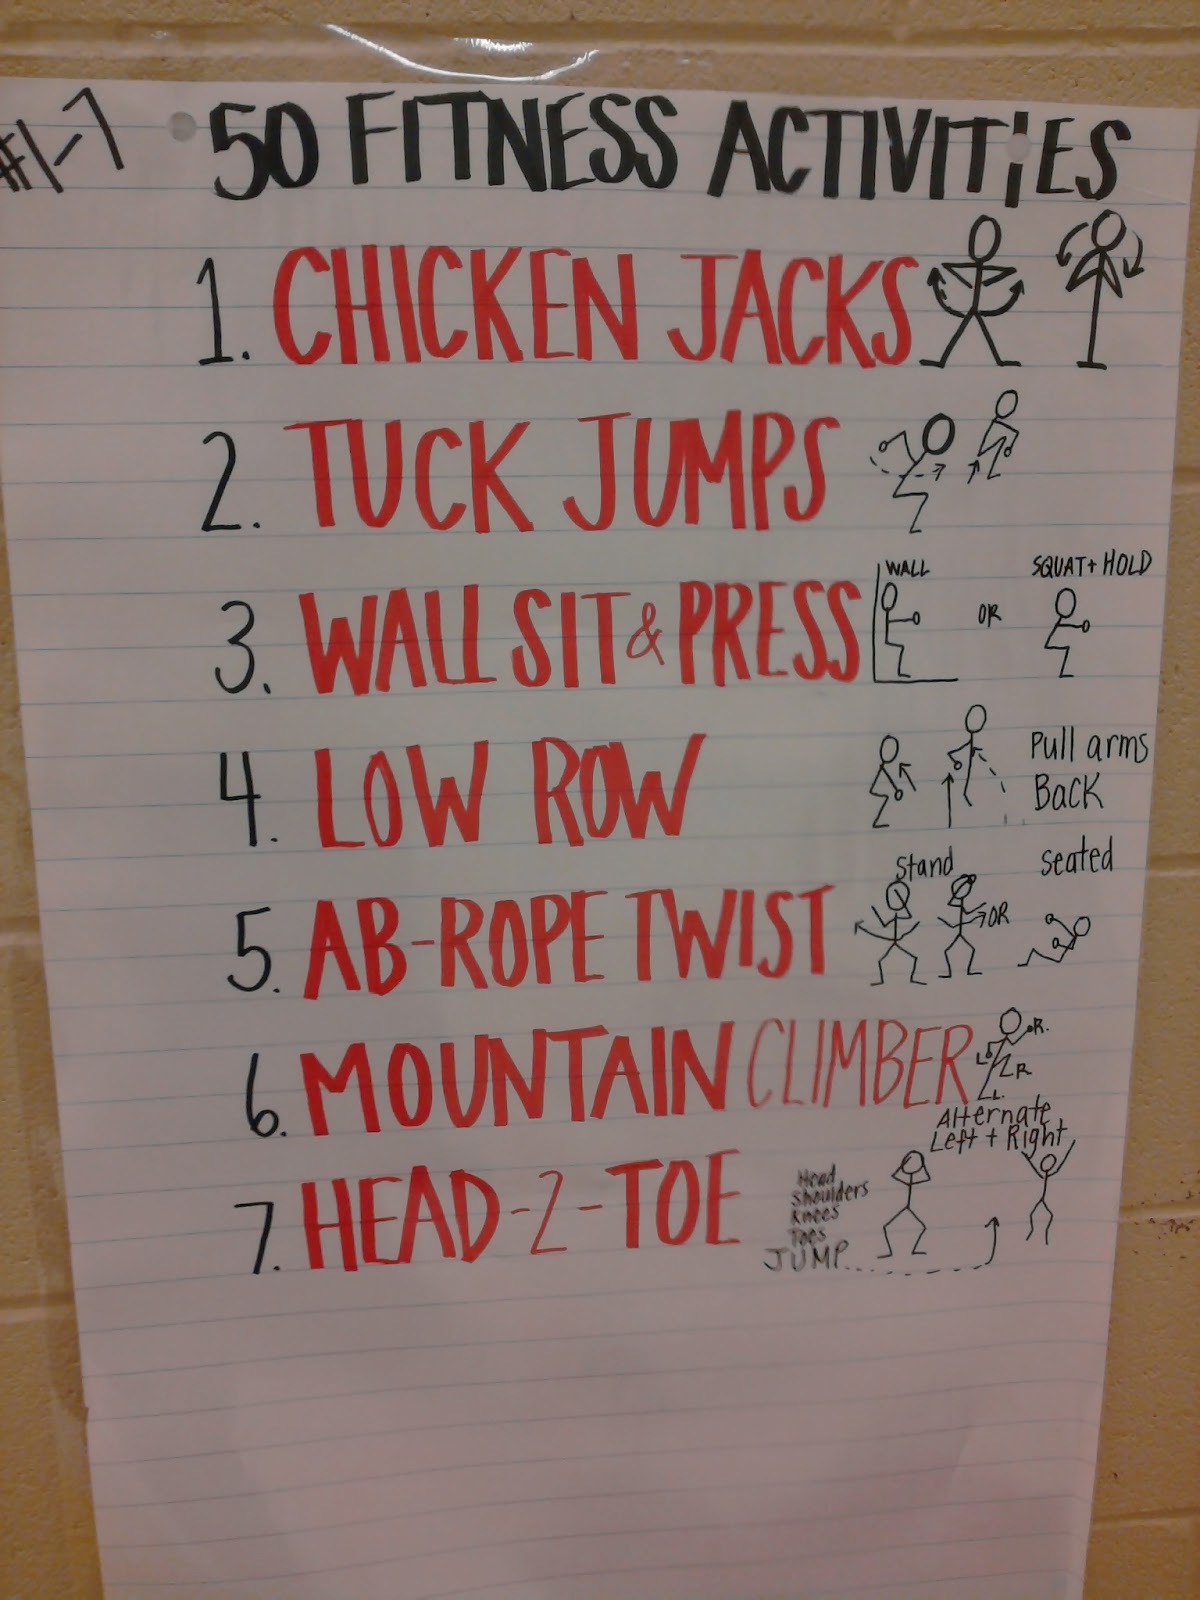 #1-7
50 FITNESS ACTIVITiES
1. CHICKEN JACKS
2. TUCK JUMPS
3. WALL SIT & PRESS
WALL
OR
SQUAT + HOLD
4. LOW ROW
Pull arms
Back
5. AB-ROPE TWIST
Stand
OR
Seated
6. MOUNTAIN CLIMBER
R.
L
R
L.
Alternate
Left + Right
7. HEAD-2-TOE
Head
Shoulders
Knees
Toes
JUMP